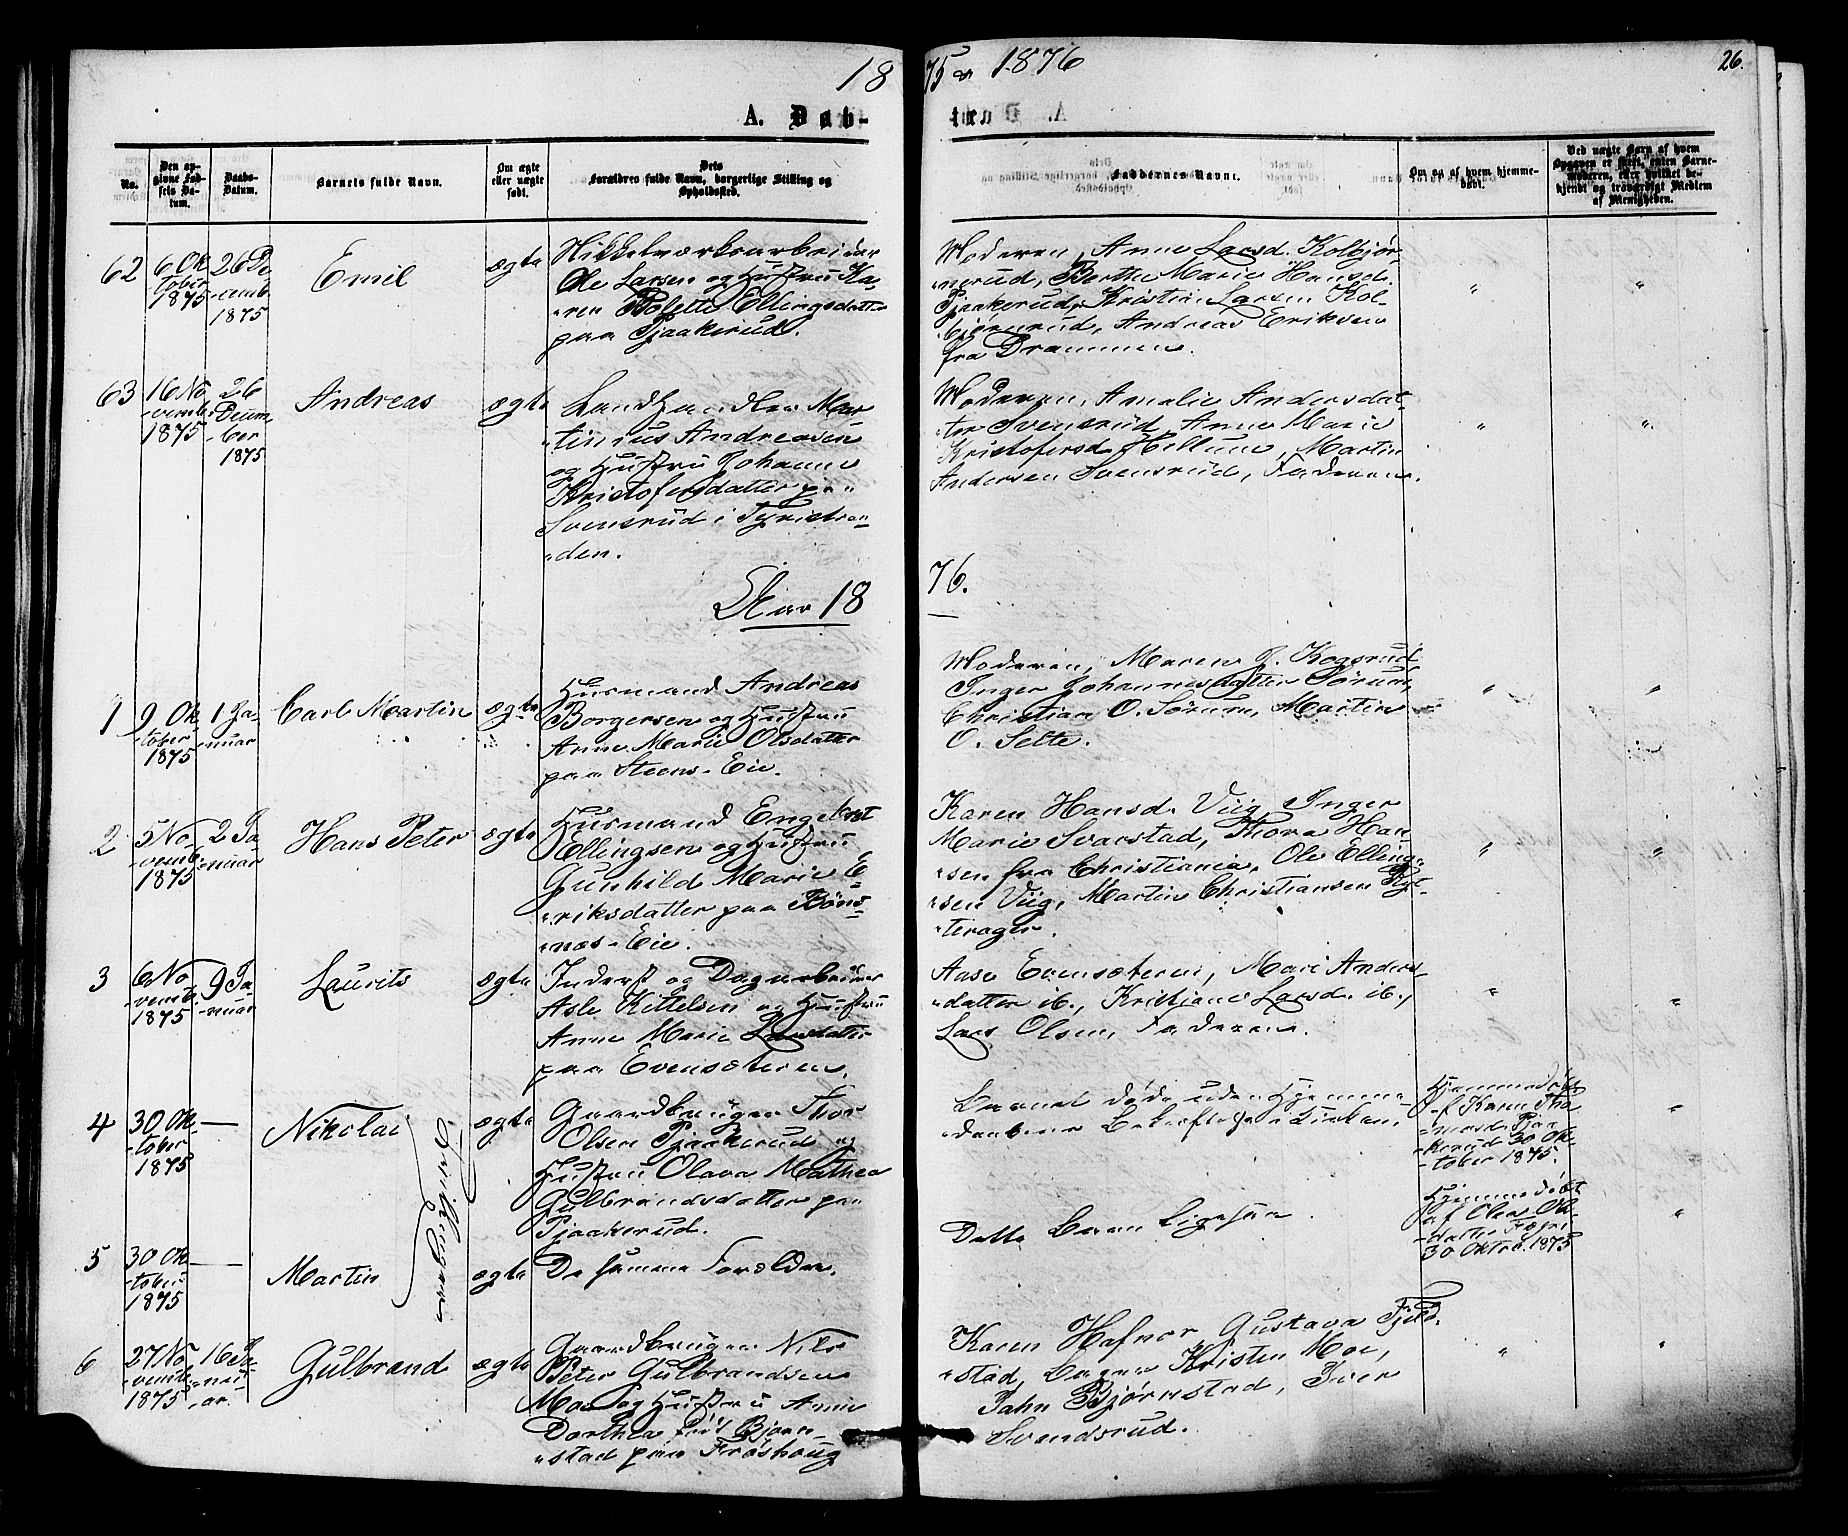 1875 og 1876
26.
A. Døbte
No.
Den opgivne Fødsels Datum.
Daabs-Datum.
Barnets fulde Navn.
Om ægte eller uægte født.
Dets Forældres fulde Navn, borgerlige Stilling og Opholdssted.
Faddernes Navne.
Om og af hvem hjemmedøbt.
Ved uægte Børn af hvem Opgaven er skeet, enten Barnemoderen, eller hvilket bekjendt og troværdigt Medlem af Menigheden.
62
6 Ok-
tober
1875
26 De
cemb.
1875
Emil
ægte
Nikkelværksarbeider
Ole Larsen og Hustru Ka-
ren Bosette Ellingsdatter
paa Pjaakerud.
Moderen, Anne Larsd. Kolbjør-
nerud, Berthe Marie Hansd.
Pjaakerud, Kristian Larsen Kol-
bjørnrud, Andreas Eriksen
fra Drammen.
"
"
63
16 No
vemb.
1875
26
Decem-
ber
1875
Andreas
ægte
Landhandler Mar-
tinius Andreasen
og Hustru Johanne
Kristofersdatter paa
Svensrud i Tyristran-
den.
Moderen, Amalie Andersdat-
ter Svensrud, Anne Marie
Kristofersd. Hillum, Martin
Andersen Svensrud, Faderen.
"
"
Aar 1876.
1
9 Ok-
tober
1875
1 Ja-
nuar
Carl Martin
ægte
Husmand Andreas
Borgersen og Hustru
Anne Marie Olsdatter
paa Steens-Eie.
Moderen, Maren J. Kogsrud,
Inger Johannesdatter Sørum,
Christian O. Sørum, Martin
O. Selte.
"
"
2
5 No
vemb.
1875
2 Ja-
nuar
Hans Peter
ægte
Husmand Engebret
Ellingsen og Hustru
Gunhild Marie E-
riksdatter paa Bøns-
næs-Eie.
Karen Hansd. Viig, Inger
Marie Svarstad, Thora Han-
sen fra Christiania, Ole Elling-
sen Viig, Martin Christiansen Ryt-
terager.
"
"
3
6 No
vemb.
1875
9 Ja-
nuar
Laurits
ægte
Inderst og Dagarbeider
Asle Kittelsen og Hustru
Anne Marie Larsdatter
paa Evensæteren.
Aase Evensæteren, Mari Anders-
datter ib., Kristiane Larsd. ib.,
Lars Olsen, Faderen.
"
"
4
30 Ok-
tober
1875
—
Nikolai
Tvillinger
ægte
Gaardbruger Thor
Olsen Pjaakerud og
Hustru Olava Mathea
Gulbrandsdatter paa
Pjaakerud.
Barnet døde uden Hjemme-
daabens Bekræftelse i Kirken.
Hjemmedøbt
af Karen Tho
masd. Pjaa-
kerud 30 Ok-
tober 1875.
"
5
30 Ok-
tober
1875
—
Martin
ægte
De samme Forældre.
Dette Barn ligesaa.
Hjemmedøbt
30 Oktob. 1875
"
6
27 No
vemb.
1875
16 Ja-
nu-
ar.
Gulbrand
ægte
Gaardbruger Nils
Peter Gulbrandsen
Moe og Hustru Anne
Dorthea født Bjørn-
stad paa Frøshoug
Karen Hafnor, Gustava Fjeld-
stad, Kristen Moe,
Jahn Bjørnstad, Iver
Svendsrud.
"
"